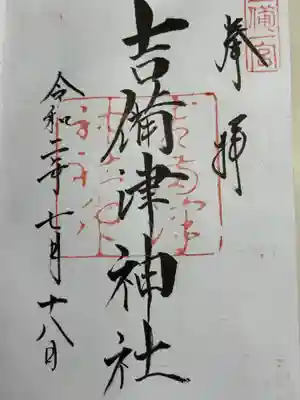 奉拝
吉備津神社
令和二年七月十八日